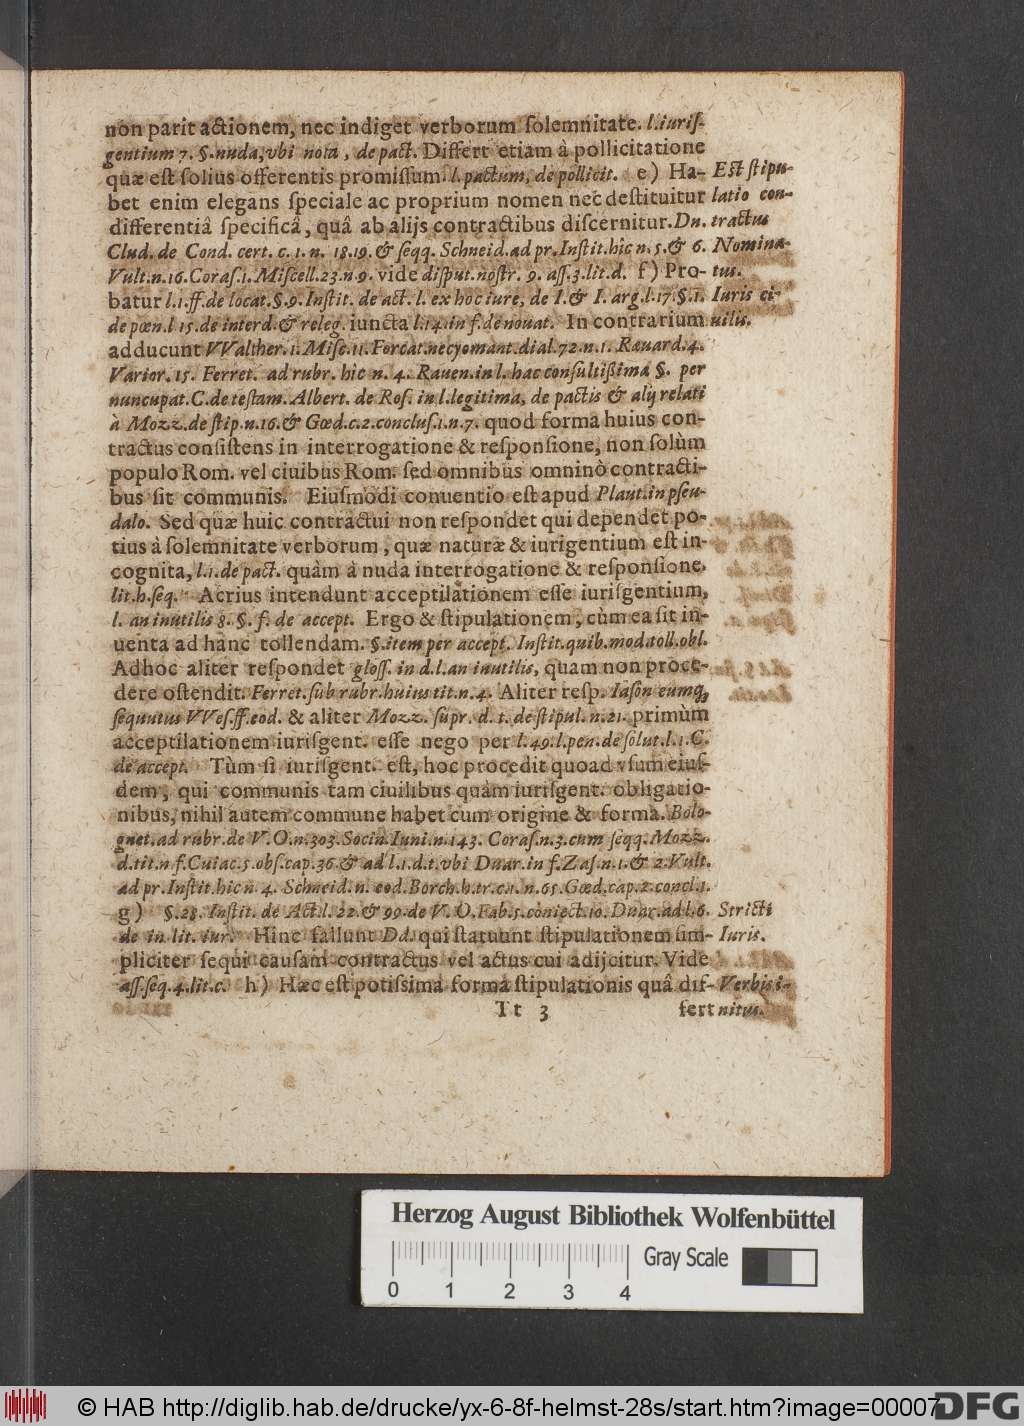 non parit actionem, nec indiget verborum ſolemnitate. l. iuriſ-
gentium 7. §. nuda, vbi nota, de pact. Differt etiam à pollicitatione
quæ eſt ſolius offerentis promiſſum. l. pactum, de pollicit. e) Ha- Eſt ſtipu-
bet enim elegans ſpeciale ac proprium nomen nec deſtituitur latio con-
differentiâ ſpecificâ, quâ ab alijs contractibus diſcernitur. Dn. tractus
Clud. de Cond. cert. c. 1. n. 18. 19. & ſeqq. Schneid. ad pr. Inſtit. hic n. 5. & 6. Nomina-
Vult. n. 16. Coraſ. 1. Miſcell. 23. n. 9. vide diſput. noſtr. 9. aſſ. 3. lit. d. f) Pro- tus.
batur l. 1. ff. de locat. §. 9. Inſtit. de act. l. ex hoc iure, de I. & I. arg. l. 17. §. 1. Iuris ci-
de pœn. l 15. de interd. & releg. iuncta l. 14. in f. de nouat. In contrarium uilis.
adducunt VValther. 1. Miſc. 11. Forcat. necyomant. dial. 72. n. 1. Ræuard. 4.
Varior. 15. Ferret. ad rubr. hic n. 4. Rauen. in l. hac conſultißimâ §. per
nuncupat. C. de teſtam. Albert. de Roſ. in l. legitima, de pactis & alij relati
à Mozz. de ſtip. n. 16. & Gœd. c. 2. concluſ. 1. n. 7. quod forma huius con-
tractus conſiſtens in interrogatione & reſponſione, non ſolùm
populo Rom. vel ciuibus Rom. ſed omnibus omninò contracti-
bus ſit communis. Eiuſmodi conuentio eſt apud Plaut. in pſeu-
dalo. Sed quæ huic contractui non reſpondet qui dependet po-
tius à ſolemnitate verborum, quæ naturæ & iurigentium eſt in-
cognita, l. 1. de pact. quàm à nuda interrogatione & reſponſione.
lit. h. ſeq. Acrius intendunt acceptilationem eſſe iuriſgentium,
l. an inutilis 8. §. f. de accept. Ergo & ſtipulationem, cùm ea ſit in-
uenta ad hanc tollendam. §. item per accept. Inſtit. quib. mod. toll. obl.
Adhoc aliter reſpondet gloſſ. in d. l. an inutilis, quam non proce-
dere oſtendit. Ferret. ſub rubr. huius tit. n. 4. Aliter reſp. Iaſon eumq́;
ſequutus VVeſ. ff. eod. & aliter Mozz. ſupr. d. t. de ſtipul. n. 21. primùm
acceptilationem iuriſgent. eſſe nego per l. 49. l. pen. de ſolut. l. 1. C.
de accept. Tùm ſi iuriſgent. eſt, hoc procedit quoad vſum eiuſ-
dem, qui communis tam ciuilibus quàm iuriſgent. obligatio-
nibus, nihil autem commune habet cum origine & forma. Bolo-
gnet. ad rubr. de V. O. n. 303. Socin. Iuni. n. 143. Coraſ. n. 3. cum ſeqq. Mozz.
d. tit. n. f. Cuiac. 5. obſ. cap. 36. & ad l. 1. d. t. vbi Duar. in f. Zaſ. n. 1. & 2. Vult.
ad pr. Inſtit. hic n. 4. Schneid. n. eod. Borch. h. tr. c. 1. n. 65. Gœd. cap. 2. concl. 1.
g) §. 28. Inſtit. de Act. l. 22. & 99. de V. O. Fab. 5. coniect. 10. Duar. ad l. 6. Stricti
de in lit. iur. Hinc fallunt Dd. qui ſtatuunt ſtipulationem ſim- Iuris.
pliciter ſequi cauſam contractus vel actus cui adijcitur. Vide
aſſ. ſeq. 4. lit. c. h) Hæc eſt potiſſima forma ſtipulationis quâ dif- Verbis i-
Tt 3 fert nitus.
Herzog August Bibliothek Wolfenbüttel
Gray Scale
0 1 2 3 4
© HAB http://diglib.hab.de/drucke/yx-6-8f-helmst-28s/start.htm?image=00007
DFG